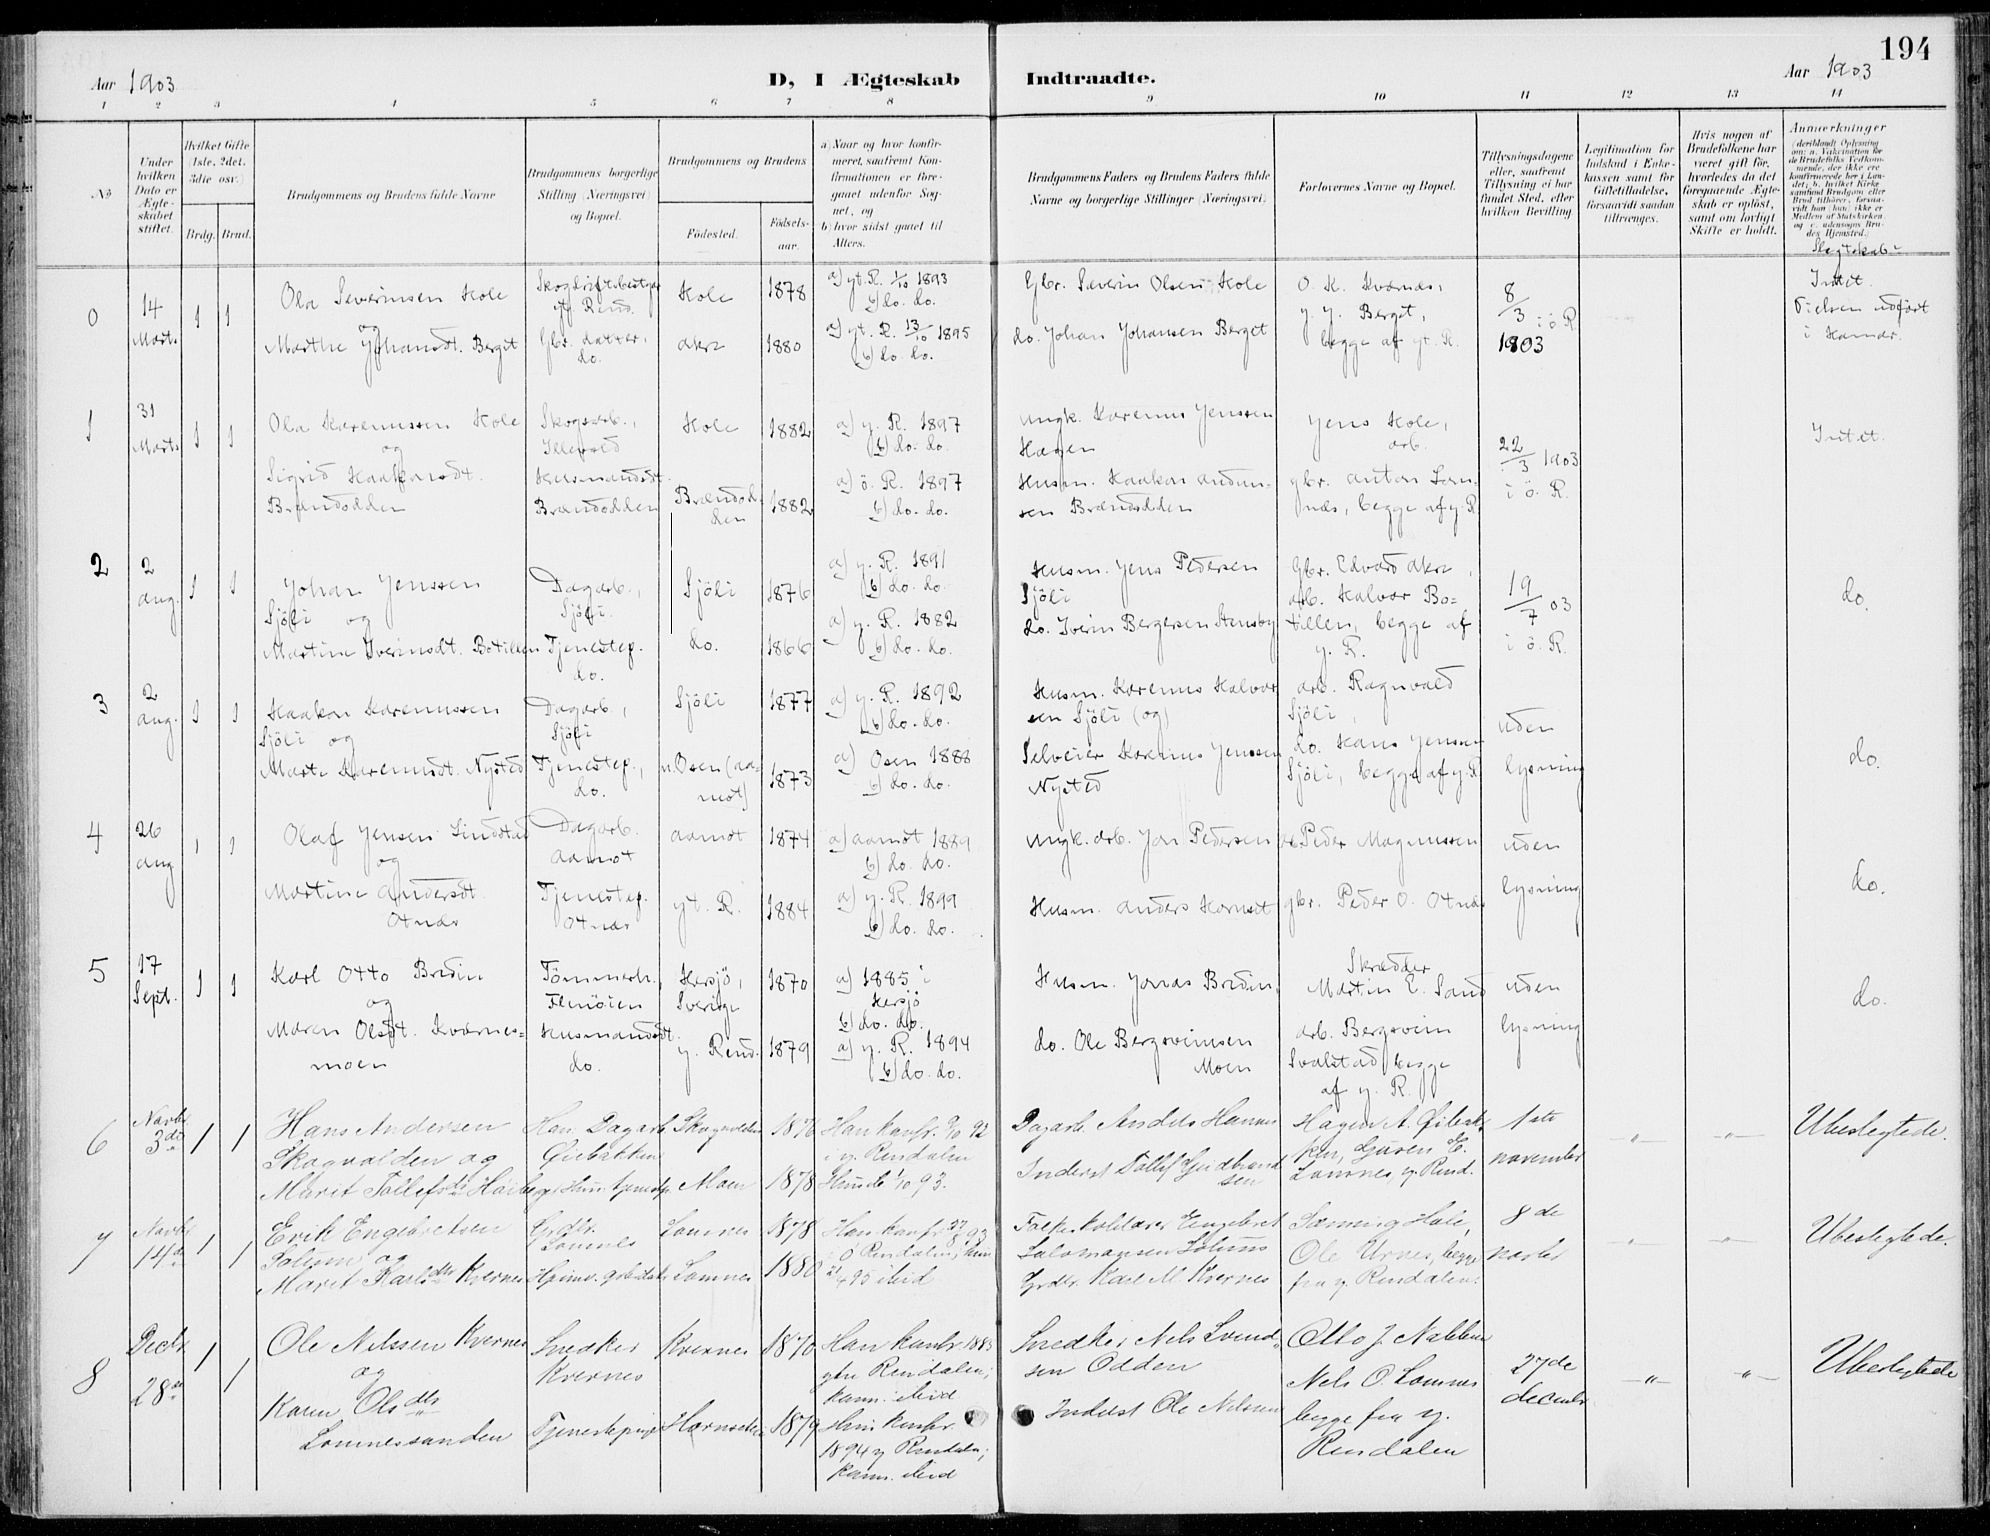 194
Aar 1903
D, I Ægteskab Indtraadte.
Aar 1903
1 2 3 4 5 6 7 8 9 10 11 12 13 14
No
Under hvilken Dato er Ægteskabet stiftet.
Hvilket Gifte 1ste. 2det. 3die osv.)
Brdg. Brud.
Brudgommens og Brudens fulde Navne
Brudgommens borgerlige Stilling (Næringsvei) og Bopæl.
Brudgommens og Brudens
Fødested. Fødsels-aar.
a) Naar og hvor konfir-
meret, saafremt Kon-
firmationen er fore-
gaaet udenfor Sog-
net, og
b) hvor sidst gaaet til
Alters.
Brudgommens Faders og Brudens Faders fulde
Navne og borgerlige Stillinger (Næringsvei)
Forlovernes Navne og Bopæl.
Tillysningsdagene
eller, saafremt
Tillysning ei har
fundet Sted, efter
hvilken Bevilling.
Legitimation for
Indskud i Enke-
kassen samt for
Giftetilladelse,
forsaavidt saadan
tiltrænges.
Hvis nogen af
Brudefolkene har
været gift før,
hvorledes da det
foregaaende Ægte-
skab er opløst,
samt om lovligt
Skifte er holdt.
Anmærkninger
(deriblandt Oplysning
om: a. Vakcination for
de Brudefolks Vedkom-
mende, der ikke ere
konfirmerede her i Lan-
det; b. hvilket Kirke-
samfund Brudgom eller
Brud tilhører, forsaa-
vidt han (hun) ikke er
Medlem af Statskirken,
og c. udensogns Bru-
des Hjemsted.)
Slegtskab:
0
14 Marts 1 1
Ola Severinsen Hole
og
Marthe Johansdt. Berget
Gbr. datter, do.
Hole 1878
Akre 1880
a) yt. R. 1/10 1893
b) do. do.
a) yt. R. 13/10 1895
b) do. do.
Gbr. Severin Olsen Hole
do. Johan Johansen Berget
O. K. Kværnes,
J. J. Berget,
begge af yt. R.
8/3 i ö R
1903
Intet.
Vielsen udført
i Hamar.
1
31 Marts 1 1
Ola Karenussen Hole
og
Sigrid Haakonsdt.
Brændodden
Skogsarb.,
Illevold
Husmandsdt.
Brændodden
Hole 1882
Brændodden 1882
a) y. R. 1897
b) do. do.
a) ö. R. 1897
b) do. do.
Ungk. Karenus Jenssen
Hagen
Husm. Haakon Andun-
sen Brændodden
Jens Hole,
arb.
gbr. Anton Lom-
næs, begge af y. R.
22/3 1903
i ö. R.
Intet.
2
2 Aug. 1 1
Johan Jenssen
Sjöli og
Martine Iverinsdt. Botillen
Dagarb.,
Sjöli.
Tjenestep.
do.
Sjöli 1876
do. 1866
a) y. R. 1891
b) do. do.
a) y. R. 1882
b) do. do.
Husm. Jens Pedersen
Sjöli
do. Iverin Bergersen Stensby
Gbr. Edvard Akre,
arb. Halvor Bo-
tillen, begge af
y. R.
19/7 03
i ö. R.
do.
3
2 Aug. 1 1
Haakon Karenussen
Sjöli og
Marte Karenusdt. Nysted
Dagarb.,
Sjöli
Tjenestep.,
do.
Sjöli 1877
n. Osen (Aa-
mot) 1873
a) y. R. 1892
b) do. do.
a) Osen 1888
b) do. do.
Husm. Karenus Halvor
sen Sjöli (og)
Selveier Karenus Jenssen
Nysted
arb. Ragnvald
Sjöli,
do. Hans Jenssen
Sjöli, begge af y. R.
uden
lysning
do.
4
26 Aug 1 1
Olaf Jensen Lindstad
og
Martine Andersdt.
Otnæs
Dagarb.
Aamot
Tjenestep.
Otnæs
Aamot 1874
yt. R. 1884
a) Aamot 1889
b) do. do.
a) y. R. 1899
b) do. do.
Ungk. arb. Jon Pedersen
Husm. Anders Hornset
Peder Magnussen
gbr. Peder O. Otnæs
uden
lysning
do.
5
17 Sept. 1 1
Karl Otto Bredin
og
Maren Olsdt. Kværnes-
moen
Tömmerh.,
Husmandsdt.
do.
Hersjö,
Sverige 1870
y. Rend. 1879
a) 1885 i
Hersjö
b) do. do.
a) y. R. 1894
b) do. do.
Husm. Jonas Bredin,
do. Ole Bergsveinsen
Moen
Skrædder
Martin E. Sand
arb. Bergsvein
Svalstad begge
af y. R.
uden
lysning
do.
6
Novbr. 3de 1 1
Hans Andersen
Skogvolden og
Marit Tollefsdtr
Han. Dagarb
Øiebakken
Skogvolden 1876
Moen 1878
Han konfr. 9/10 92
i y. Rendalen
Hun do 1/10 93.
Dagarb. Anders Hansen
Inderst Tollef Gudbrand
sen
Hagen A. Øiebak
ken,
Lomnes, y Rend.
1ste
november
— " —
— " —
Ubeslegtede.
7
Novbr 14de 1 1
Erik Engebretsen
Solum og
Maret Karlsdtr Kvernes
Grdbr.
Lomnes
Lomnes 1878
Lomnes 1880
Han konfr 93
Ø Rendalen, hun
95 ibid
Engebret
Salomonsen Solum
Grdbr. Karl M Kvernes
Sæming Hole,
Ole Urnes, begge
fra y. Rendalen.
8de
novbr
— " —
— " —
Ubeslegtede.
8
Decbr. 28de 1 1
Ole Nilssen Kvernes
og
Karen Olsdtr
Lomnessanden
Snedker
Kvernes
Tjenestepige
Kvernes 1870
1879
Han konfr. 1885
ytre Rendalen;
kom. ibid
Hun konfr.
1894 y Rendalen;
kom. ibid
Snedker Nels Svend-
sen Odden
Inderst Ole Nilssen
Otto J. Nabben
Nels O. Lomnes
begge fra y.
Rendalen
27de
decembr
— " —
— " —
Ubeslegtede